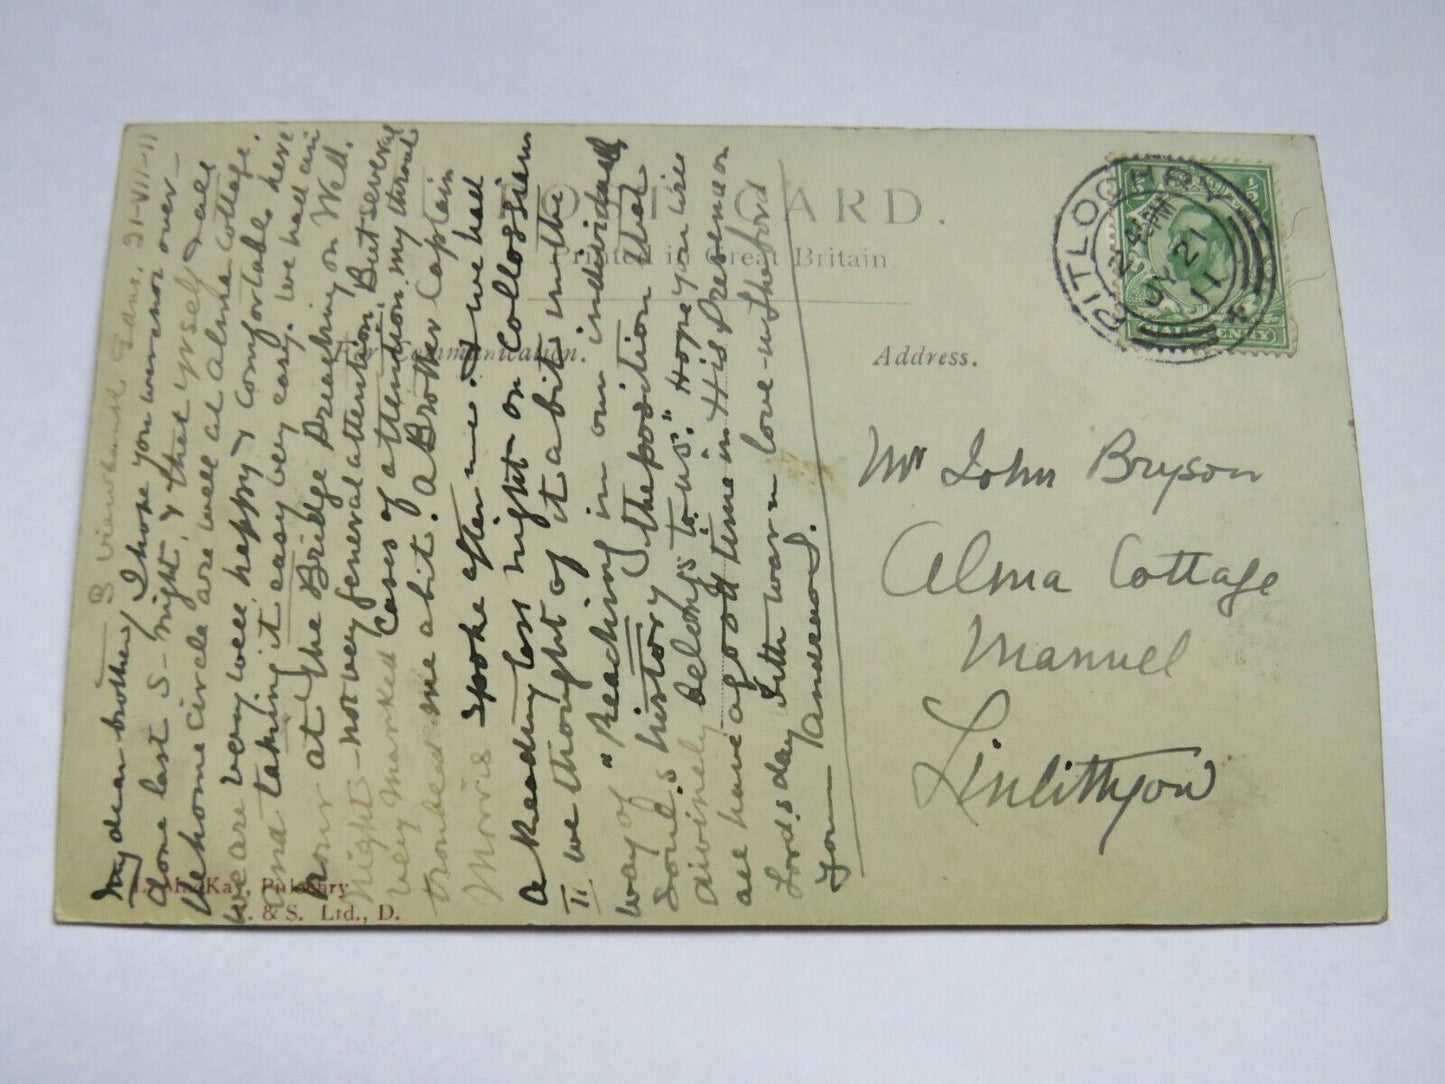 POST CARD.
Printed in Great Britain
For Communication.
Address.
PITLOCHRY
4 PM
JY 21
11
Mr John Bryson
Alma Cottage
Manuel
Linlithgow
8 Viewbank Gdns. 21-VII-11
My dear brother, I hope you were not over-
done last S- night, & that yrself & all
the home circle are well at Alma Cottage.
We are very well, happy & comfortable here
and taking it easy very easy. We had an
hour at the Bridge Preaching on Wed.
Night - not very general attention But several
very marked cases of attention, my throat
troubled me a bit. A Brother Captain
Morris spoke after me. & we had
a Reading last night on Collossians
II we thought of it a bit in the
way of "Reaching in our individual
soul's history the position that
divinely belongs to us." Hope you will
all have a good time in His Presence on
Lord's day With warm love in the Lord
Your Anderson.
J. MacKay, Pitlochry
V. & S. Ltd., D.